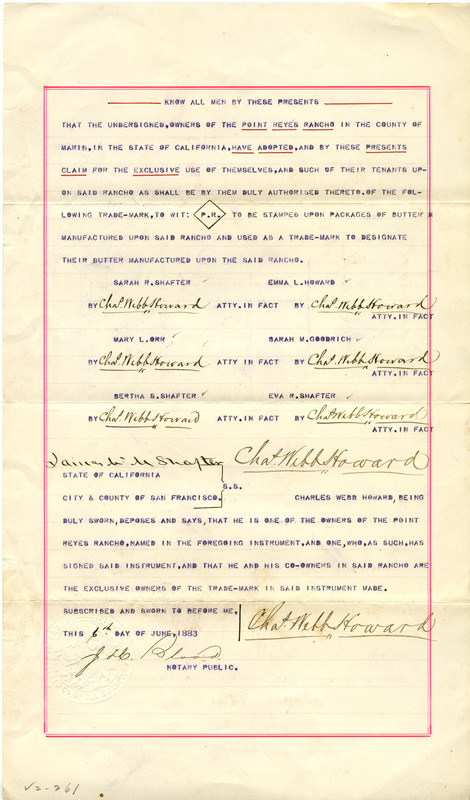 KNOW ALL MEN BY THESE PRESENTS
THAT THE UNDERSIGNED,OWNERS OF THE POINT REYES RANCHO IN THE COUNTY OF
MARIN,IN THE STATE OF CALIFORNIA,HAVE ADOPTED,AND BY THESE PRESENTS
CLAIM FOR THE EXCLUSIVE USE OF THEMSELVES,AND SUCH OF THEIR TENANTS UP-
ON SAID RANCHO AS SHALL BE BY THEM DULY AUTHORISED THERETO.OF THE FOL-
LOWING TRADE-MARK,TO WIT: P.R. TO BE STAMPED UPON PACKAGES OF BUTTER
MANUFACTURED UPON SAID RANCHO AND USED AS A TRADE-MARK TO DESIGNATE
THEIR BUTTER MANUFACTURED UPON THE SAID RANCHO.
SARAH R.SHAFTER EMMA L.HOWARD
BY Chas. Webb Howard ATTY.IN FACT BY Chas. Webb Howard
ATTY.IN FACT
MARY L.ORR SARAH M.GOODRICH
BY Chas. Webb Howard ATTY.IN FACT BY Chas. Webb Howard
ATTY.IN FACT
BERTHA S.SHAFTER EVA R.SHAFTER
BY Chas. Webb Howard ATTY.IN FACT BY Chas. Webb Howard
ATTY.IN FACT
James Mc M Shafter Chas. Webb Howard
STATE OF CALIFORNIA
S.S.
CITY & COUNTY OF SAN FRANCISCO. CHARLES WEBB HOWARD,BEING
DULY SWORN,DEPOSES AND SAYS,THAT HE IS ONE OF THE OWNERS OF THE POINT
REYES RANCHO,NAMED IN THE FOREGOING INSTRUMENT,AND ONE,WHO,AS SUCH,HAS
SIGNED SAID INSTRUMENT,AND THAT HE AND HIS CO-OWNERS IN SAID RANCHO ARE
THE EXCLUSIVE OWNERS OF THE TRADE-MARK IN SAID INSTRUMENT MADE.
SUBSCRIBED AND SWORN TO BEFORE ME, Chas. Webb Howard
THIS 6th DAY OF JUNE,1883
NOTARY PUBLIC.
V2-261